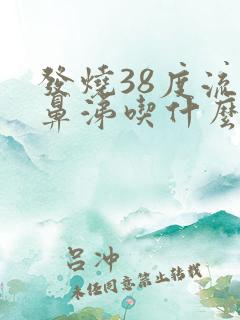 發燒38度流
鼻涕喫什麽
呂冲
未经同意禁止转载